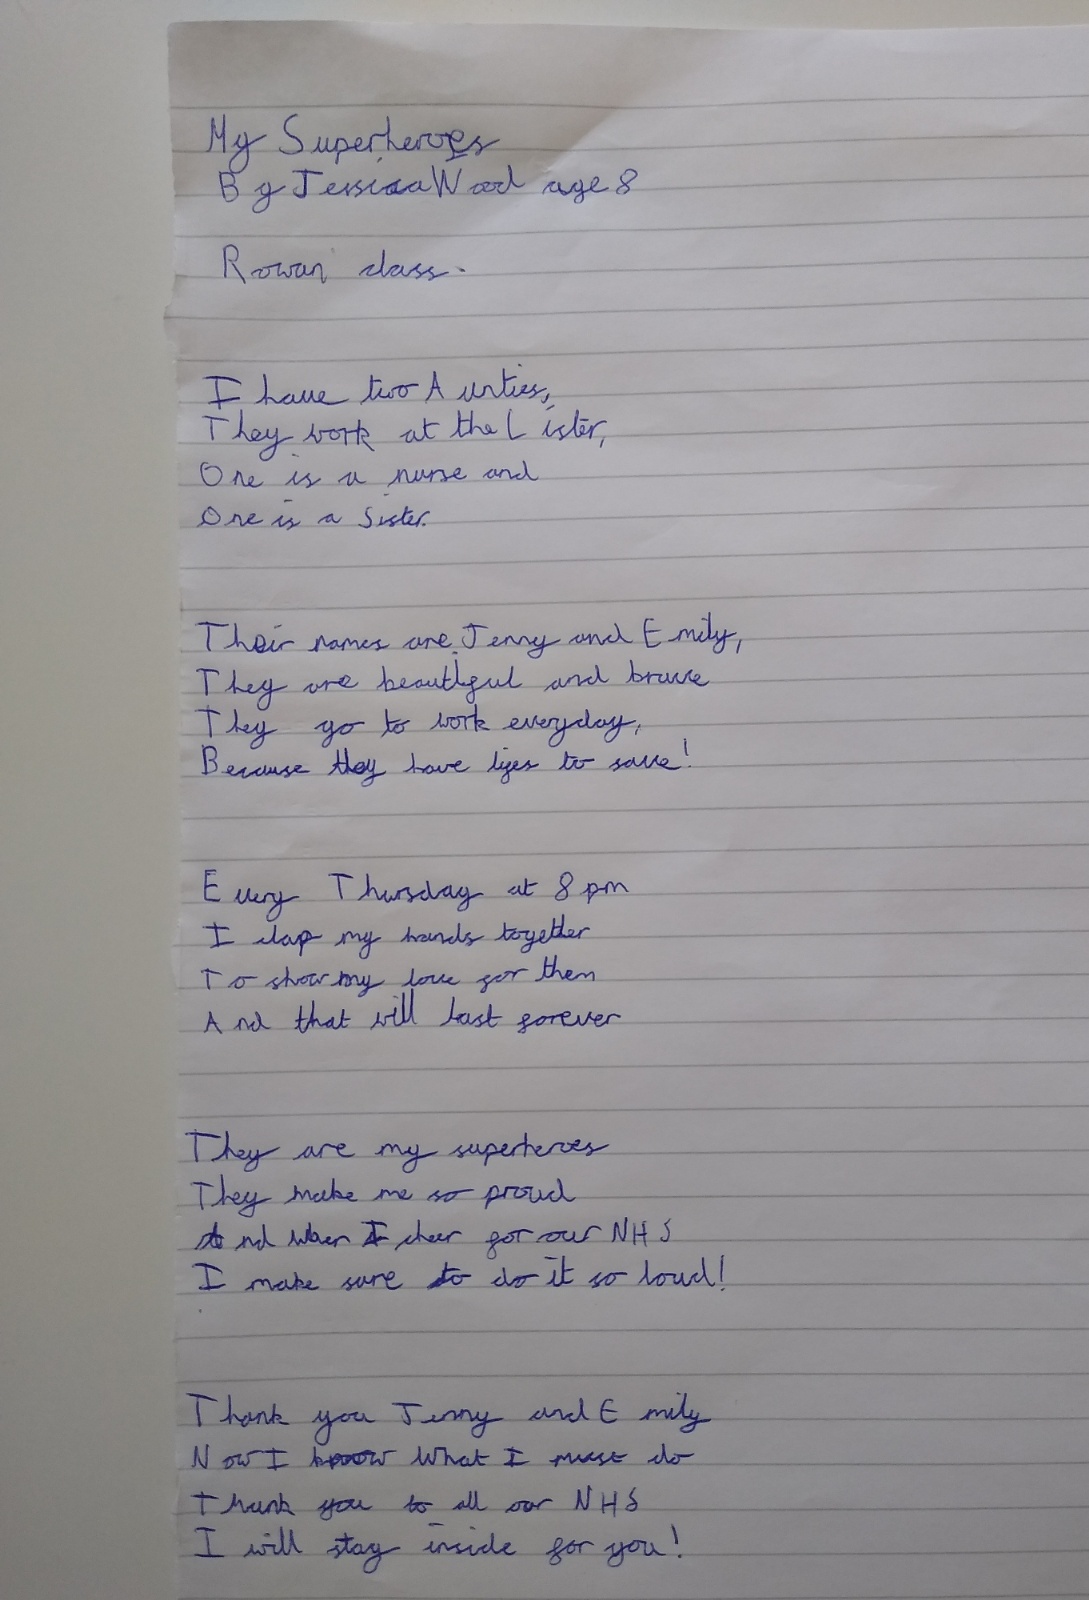 My Superheroes
By Jessica Ward age 8
Rowan class.
I have two Aunties,
They work at the Lister,
One is a nurse and
One is a Sister.
Their names are Jenny and Emily,
They are beautiful and brave
They go to work everyday,
Because they have lives to save!
Every Thursday at 8pm
I clap my hands together
To show my love for them
And that will last forever
They are my superheroes
They make me so proud
And when I cheer for our NHS
I make sure to do it so loud!
Thank you Jenny and Emily
Now I know what I must do
Thank you to all our NHS
I will stay inside for you!